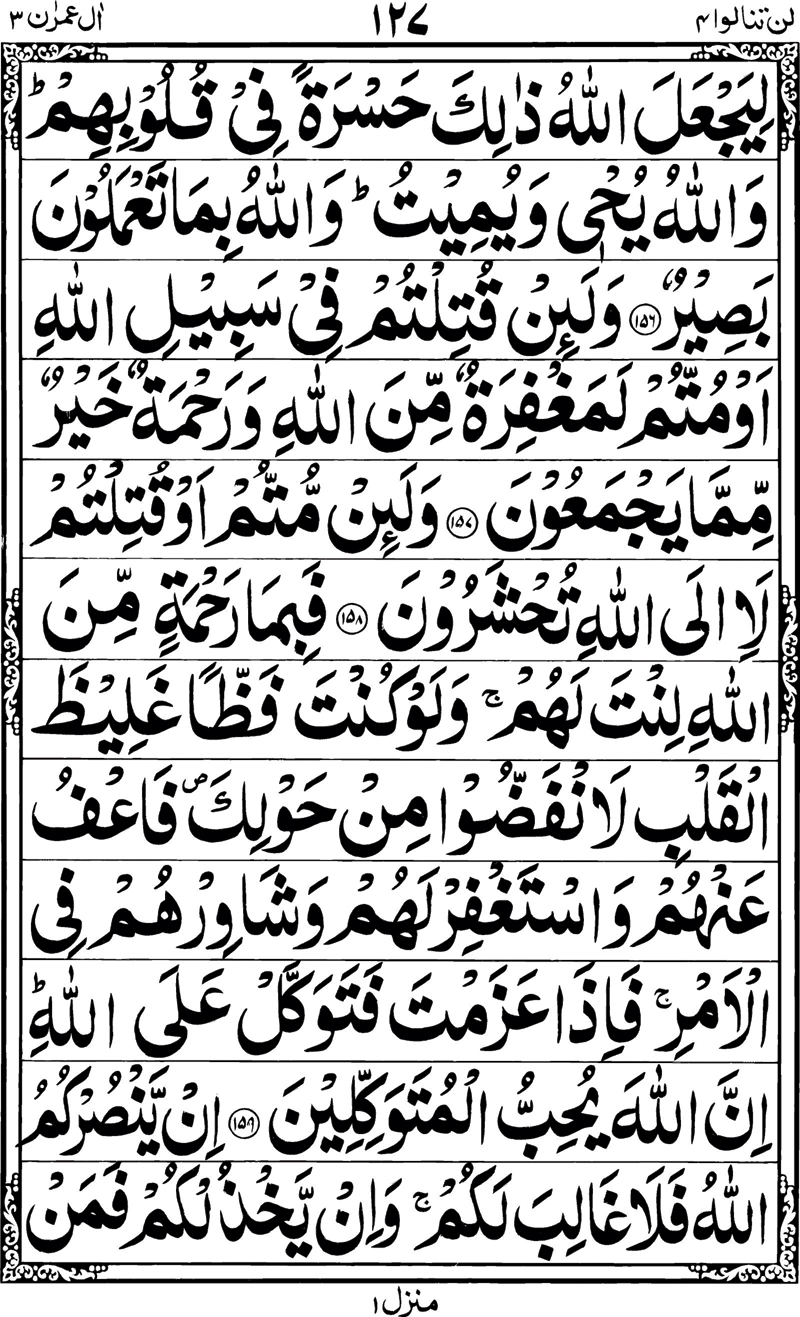 اٰل عمرٰن ۳ ۱۲۷ لن تنالوا ۴
لِيَجْعَلَ اللّٰهُ ذٰلِكَ حَسْرَةً فِىْ قُلُوْبِهِمْ ؕ
وَاللّٰهُ يُحْىٖ وَيُمِيْتُ ؕ وَاللّٰهُ بِمَا تَعْمَلُوْنَ
بَصِيْرٌ ﴿۱۵۶﴾ وَلَٮِٕنْ قُتِلْتُمْ فِىْ سَبِيْلِ اللّٰهِ
اَوْ مُتُّمْ لَمَغْفِرَةٌ مِّنَ اللّٰهِ وَرَحْمَةٌ خَيْرٌ
مِّمَّا يَجْمَعُوْنَ ﴿۱۵۷﴾ وَلَٮِٕنْ مُّتُّمْ اَوْ قُتِلْتُمْ
لَا۟اِلَى اللّٰهِ تُحْشَرُوْنَ ﴿۱۵۸﴾ فَبِمَا رَحْمَةٍ مِّنَ
اللّٰهِ لِنْتَ لَهُمْ ۚ وَلَوْ كُنْتَ فَظًّا غَلِيْظَ
الْقَلْبِ لَانْفَضُّوْا مِنْ حَوْلِكَ ۖ فَاعْفُ
عَنْهُمْ وَاسْتَغْفِرْ لَهُمْ وَشَاوِرْهُمْ فِى
الْاَمْرِ ۚ فَاِذَا عَزَمْتَ فَتَوَكَّلْ عَلَى اللّٰهِ ؕ
اِنَّ اللّٰهَ يُحِبُّ الْمُتَوَكِّلِيْنَ ﴿۱۵۹﴾ اِنْ يَّنْصُرْكُمُ
اللّٰهُ فَلَا غَالِبَ لَكُمْ ۚ وَاِنْ يَّخْذُلْكُمْ فَمَنْ
منزل ۱